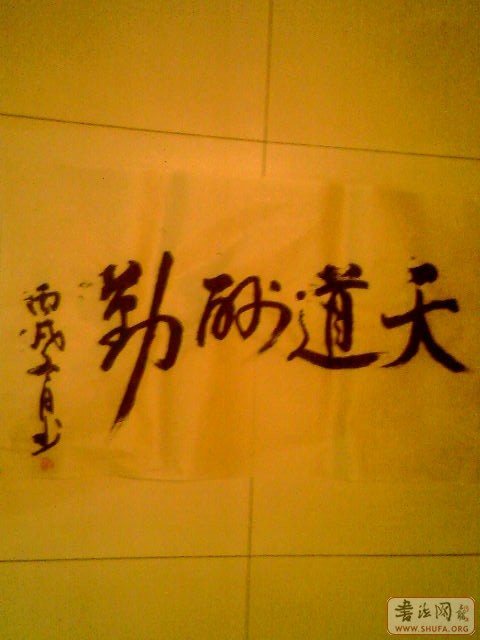 天道酬勤
丙戌五月书
书法网
WWW.SHUFA.ORG